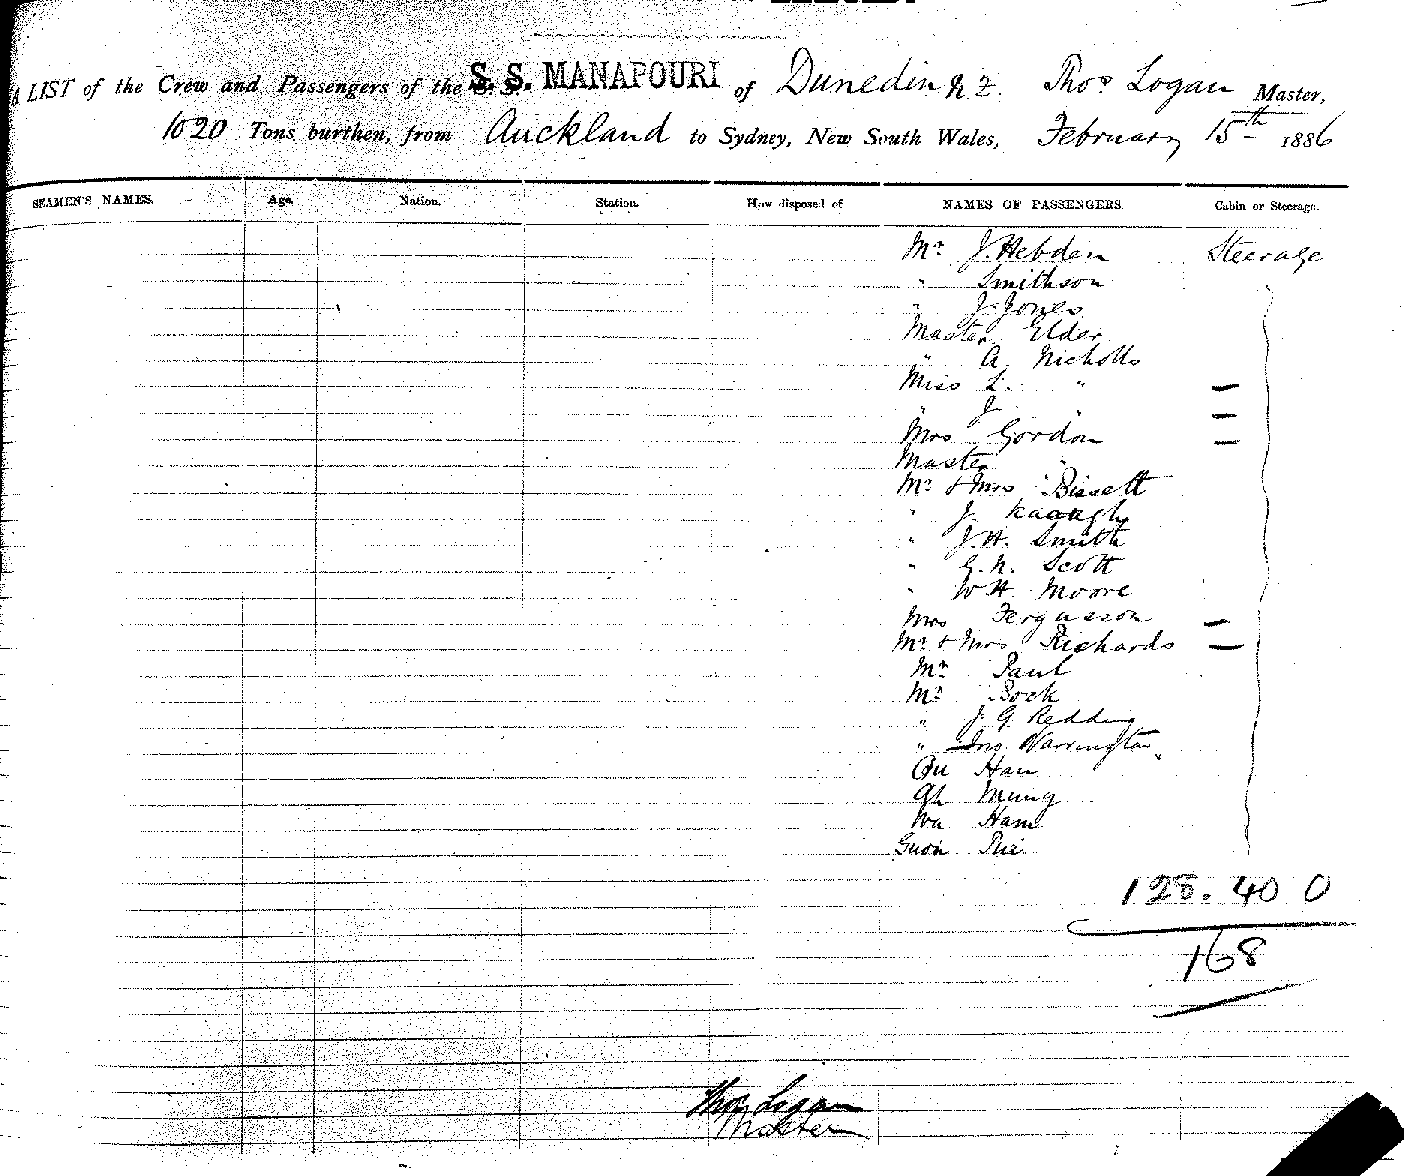 A LIST of the Crew and Passengers of the S. S. MANAPOURI of Dunedin N Z. Thos Logan Master,
1020 Tons burthen, from Auckland to Sydney, New South Wales, February 15th 1886
SEAMEN'S NAMES. Age. Nation. Station. How disposed of NAMES OF PASSENGERS. Cabin or Steerage.
Mr J. Hebden Steerage
" Smithson
" J. Jones
Master Elder
" A Nicholls
Miss L. " —
" J " —
Mrs Gordon —
Master "
Mr & Mrs Bissett
" J.
" J. H. Smith
" G. N. Scott
" W H Moore
Mrs Fergusson —
Mr & Mrs Richards —
Mr Paul
Mr Bock
" J. G. Redding
" Jno. Warrington
Han
Ah Mung
Wa Ham
Guon
128. 40 0
168
Thos Logan
Master